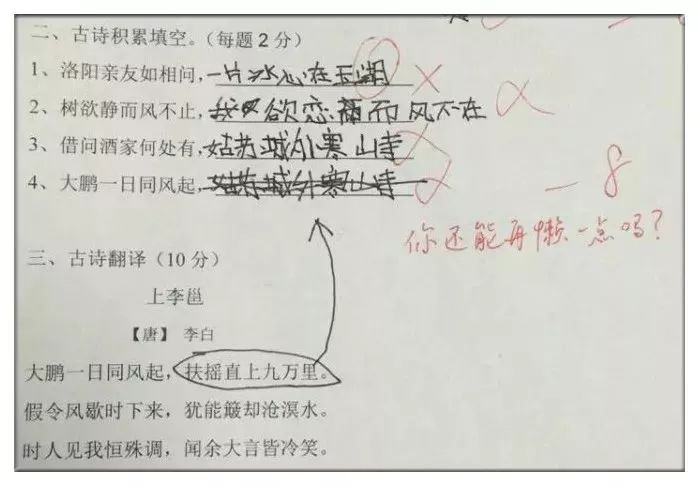 二、古诗积累填空。（每题2分）
1、洛阳亲友如相问，一片冰心在玉湖 ×
2、树欲静而风不止，我又欲恋而风不在 ×
3、借问酒家何处有，姑苏城外寒山寺 ×
4、大鹏一日同风起，姑苏城外寒山寺 ×
－8
你还能再懒一点吗？
三、古诗翻译（10分）
上李邕
【唐】 李白
大鹏一日同风起，扶摇直上九万里。
假令风歇时下来，犹能簸却沧溟水。
时人见我恒殊调，闻余大言皆冷笑。